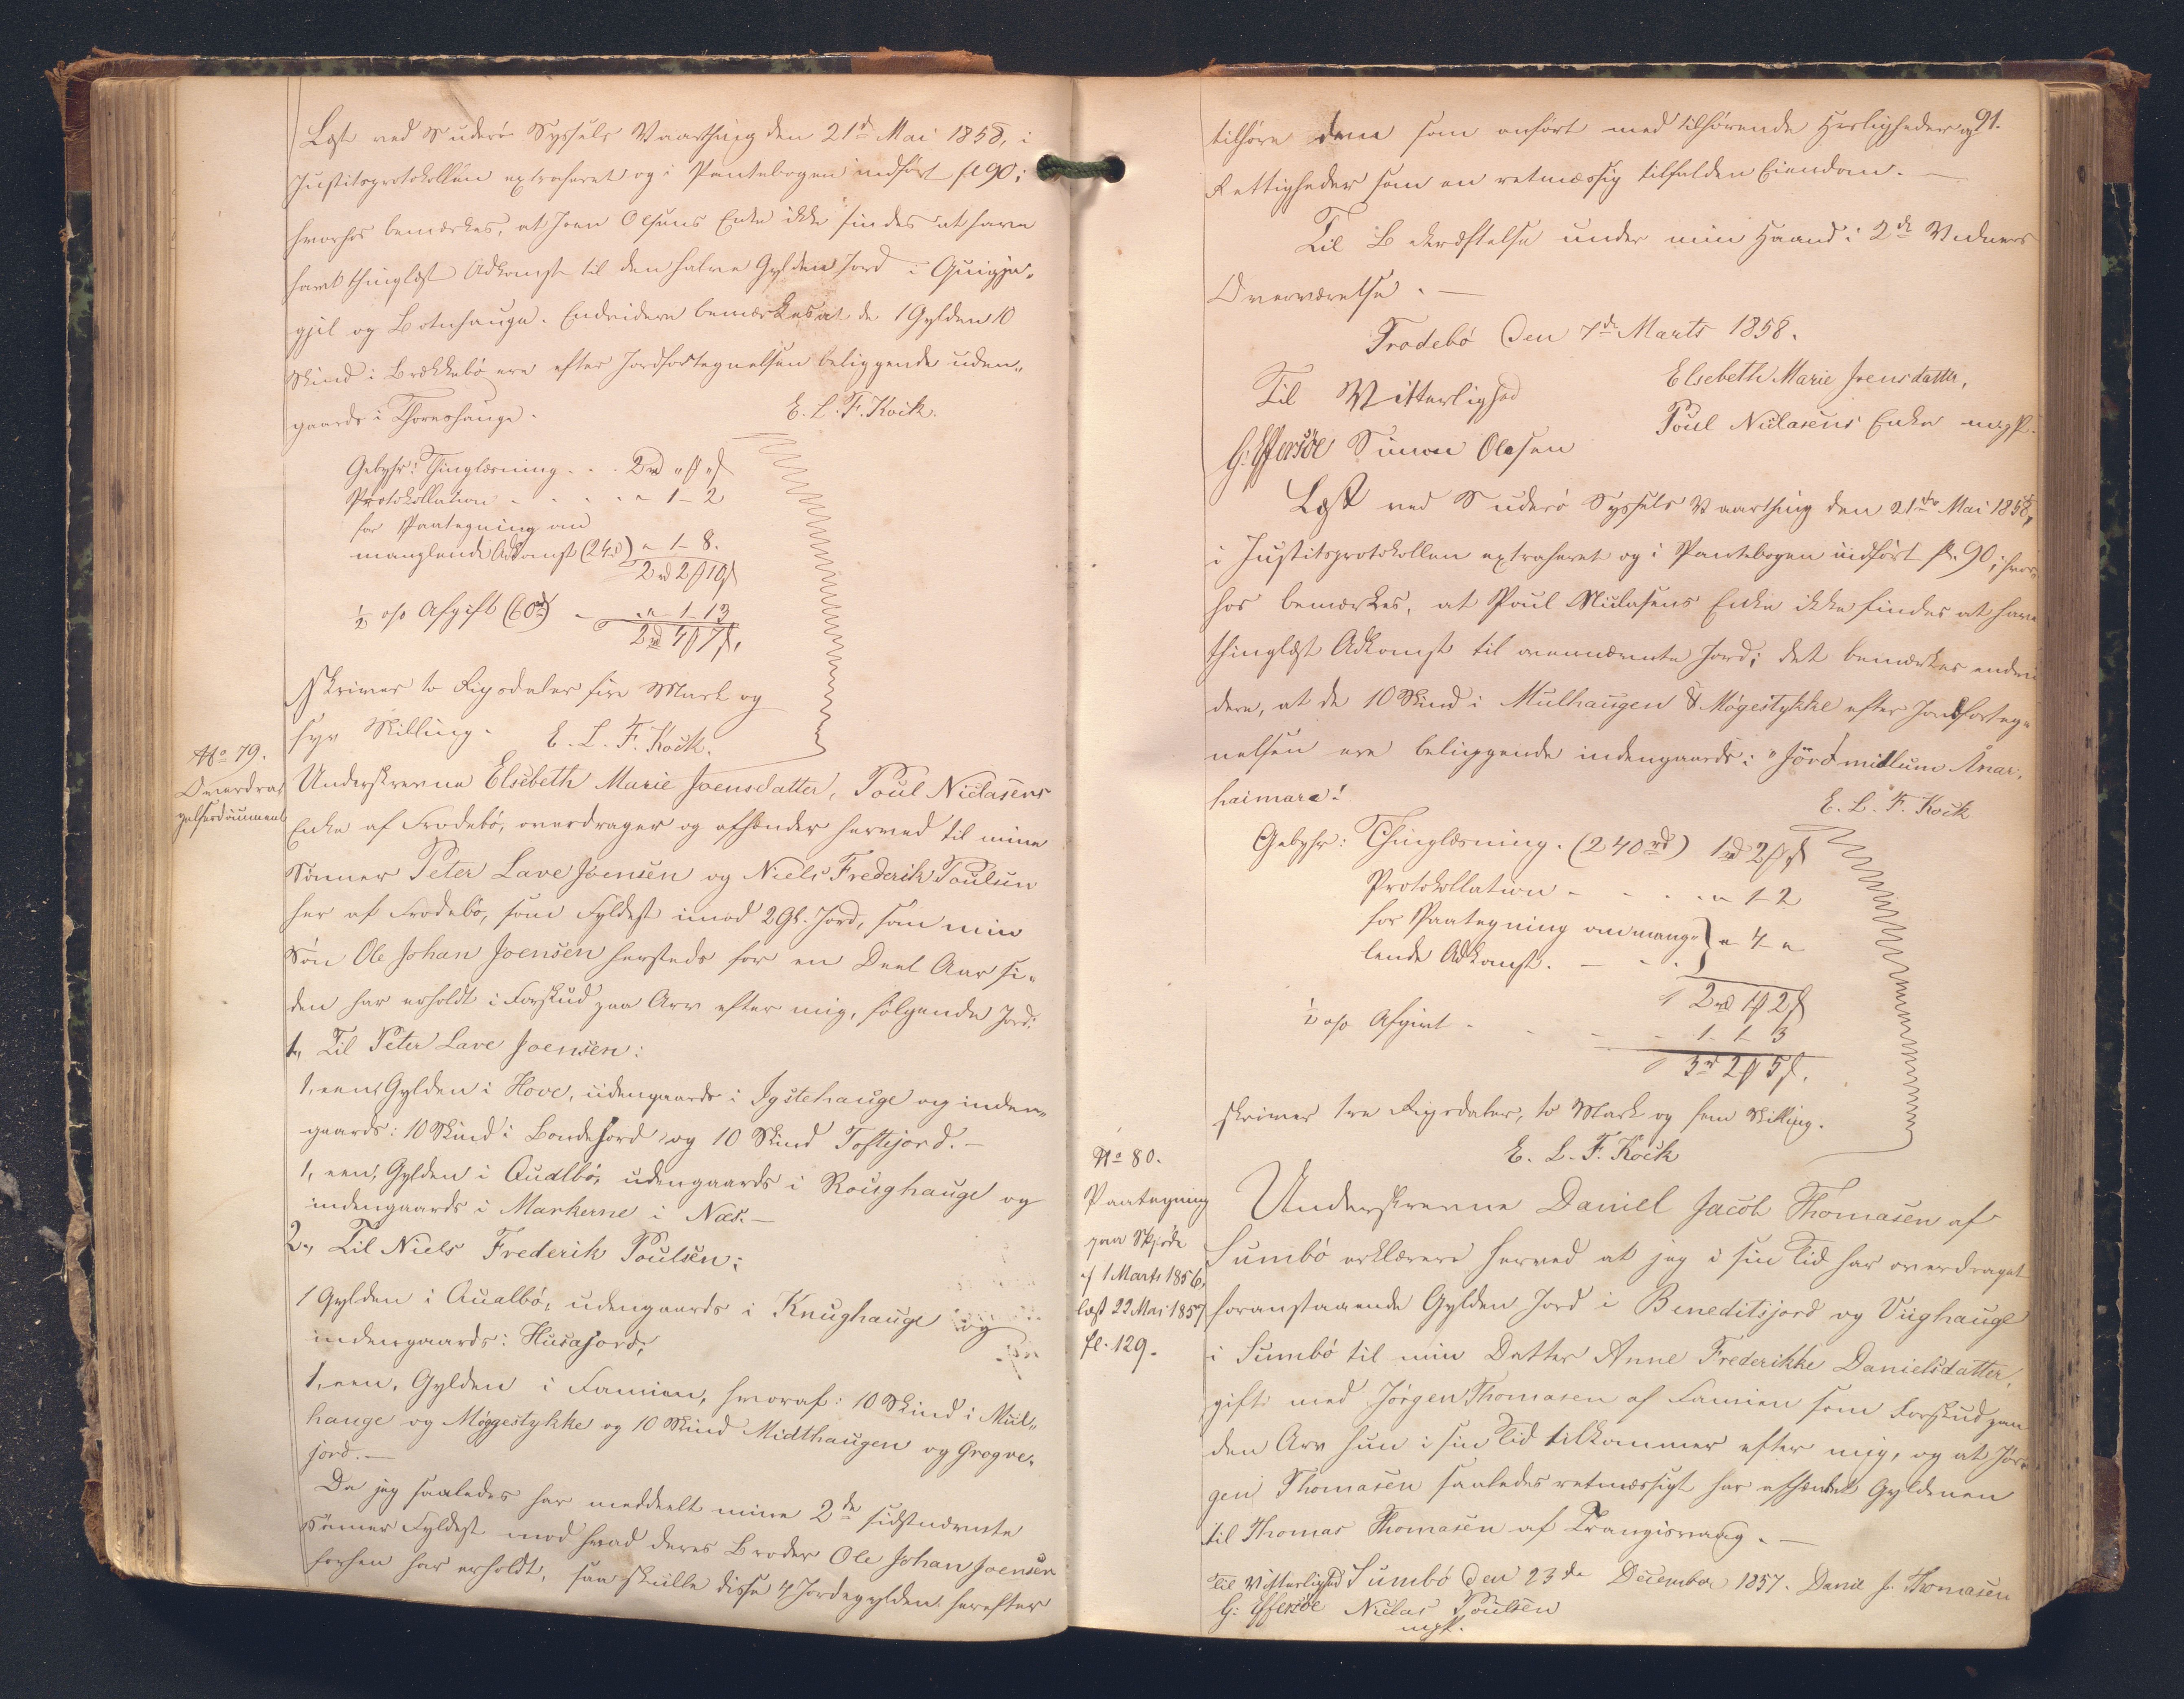 Læst ved Suderø Syssels Vaarthing den 21de Mai 1858, i
Justitsprotokollen extraheret og i Pantebogen indført fl 90;
hvorhos bemærkes, at Joen Olsens Enke ikke findes at have
havt thinglæst Adkomst til den halve Gylden Jord i
gjil og Botnhauge. Endvidere bemærkes at de 1 Gylden 10
Skind i Brekkebø ere efter Jordfortegnelsen beliggende uden„
gaards i Thoreshauge.
E. L. F. Kock.
Gebyhr: Thinglæsning . . . 2rd „ß „s
Protokollation - - - - „ 1 - 2
for Paategning om
manglende Adkomst (24s) „ 1 - 8.
2rd 2ß 10s
½ o/o Afgift (60rd) - „ - 1 - 13
2rd 4ß 7s.
skriver to Rigsdaler fire Mark og
syv Skilling. E. L. F. Kock.
No 79.
Overdra„
gelsesdocument
Underskrevne Elsebeth Marie Joensdatter, Poul Niclasens
Enke af Frodebø, overdrager og afhænder herved til mine
Sønner Peter Lave Joensen og Niels Frederik Poulsen
her af Frodebø, som Fyldest imod 2 Gl. Jord, som min
Søn Ole Johan Joensen hersteds for en Deel Aar si„
den har erholdt i Forskud paa Arv efter mig, følgende Jord:
1, Til Peter Lave Joensen:
1, een, Gylden i Hove, udengaards i Systehauge og inden„
gaards: 10 Skind i Bondejord og 10 Skind Toftejord. -
1, een, Gylden i Qualbø, udengaards i Roughauge og
indengaards i Markerne i Næs. -
2., Til Niels Frederik Poulsen:
1 Gylden i Qualbø, udengaards i Knughauge og
indengaards: Husajord,
1, een, Gylden i Famien, hvoraf: 10 Skind i Mul„
hauge og Møggestykke og 10 Skind Midthaugen og Grogve„
jord. -
Da jeg saaledes har meddeelt mine 2de sidstnævnte
Sønner Fyldest mod hvad deres Broder Ole Johan Joensen
forhen har erholdt, saa skulle disse 4 Jordegylden herefter
91.
tilhøre dem som anført med tilhørende Herligheder og
Rettigheder som en retmæssig tilfalden Eiendom. -
Til Bekræftelse under min Haand i 2de Vidners
Overværelse. -
Frodebø den 7de Marts 1858.
Elsebeth Marie Joensdatter,
Til Vitterlighed
Poul Niclasens Enke m.p.P.
G. Effersøe Simon Olesen
Læst ved Suderø Syssels Vaarthing den 21de Mai 1858,
i Justitsprotokollen extraheret og i Pantebogen indført fl. 90; hvor„
hos bemærkes, at Poul Niclasens Enke ikke findes at have
thinglæst Adkomst til ovennævnte Jord; det bemærkes endvi
dere, at de 10 Skind i Mulhaugen & Møgestykke efter Jordforteg„
nelsen ere beliggende indengaards: "Jörd millum Ánar„
haimara"!
E. L. F. Kock
Gebyhr: Thinglæsning. (240rd) 1rd 2ß „s
Protokollation - - - „ 1 - 2
for Paategning om mang„
lende Adkomst. - - - „ 4 „
2rd 1ß 2s
½ o/o Afgivt - - - - 1 - 1 - 3
3rd 2ß 5s.
skriver tre Rigsdaler, to Mark og fem Skilling.
E. L. F. Kock
No 80.
Paategning
paa Skjøde
af 1 Marts 1856,
læst 22 Mai 1857
fl. 129.
Underskrevne Daniel Jacob Thomasen af
Sumbø erklærer herved at jeg i sin Tid har overdraget
foranstaaende Gylden Jord i Beneditsjord og Viighauge
i Sumbø til min Datter Anne Frederikke Danielsdatter,
gift med Jørgen Thomasen af Famien som Forskud paa
den Arv hun i sin Tid tilkommer efter mig, og at Jør„
gen Thomasen saaledes retmæssigt har afhændet Gyldenen
til Thomas Thomasen af Trangisvaag. -
Til Vitterlighed Sumbø den 23de December 1857. Daniel J. Thomasen
G. Effersøe Niclas Poulsen
mpP.